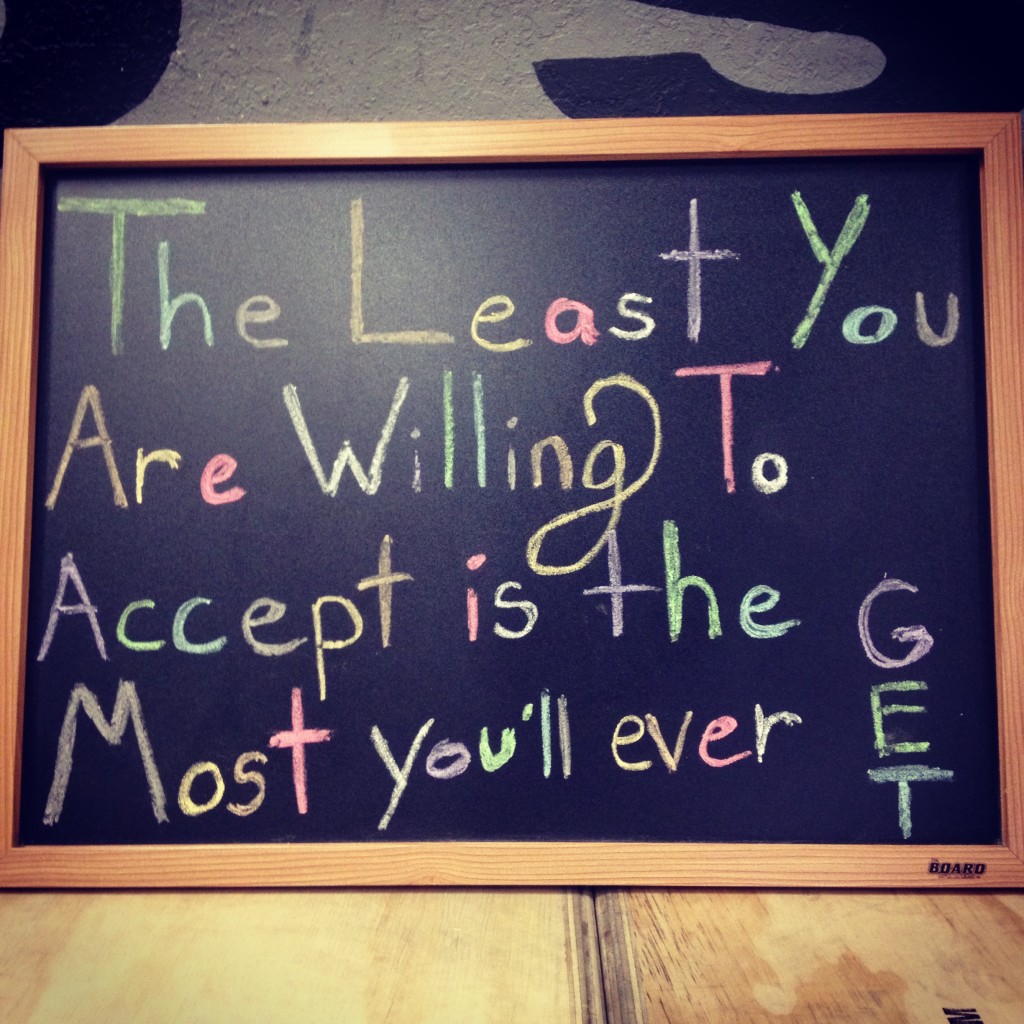 The Least You
Are Willing To
Accept is the
Most you'll ever
GET
BOARD